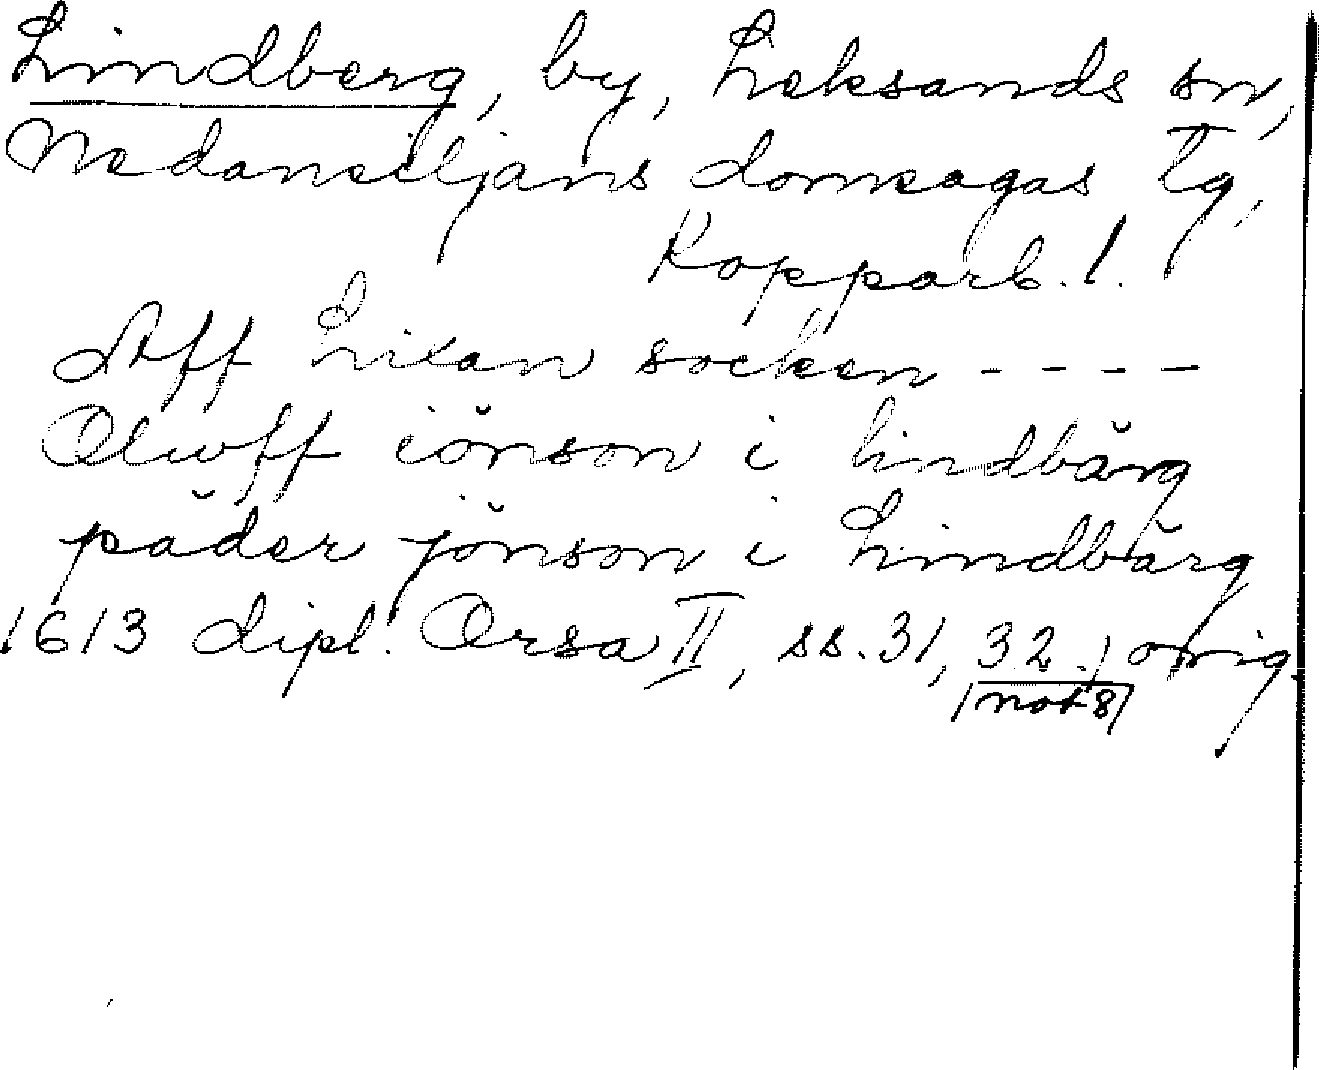 Lindberg, by, Leksands sn,
Nedansiljans domsagas tg,
Kopparb. l.
Aff Lixan socken - - - -
Olwff iönson i lindbärg
päder jönson i Lindbärg
1613 dipl. Orsa II, ss. 31, 32, orig.
not 8